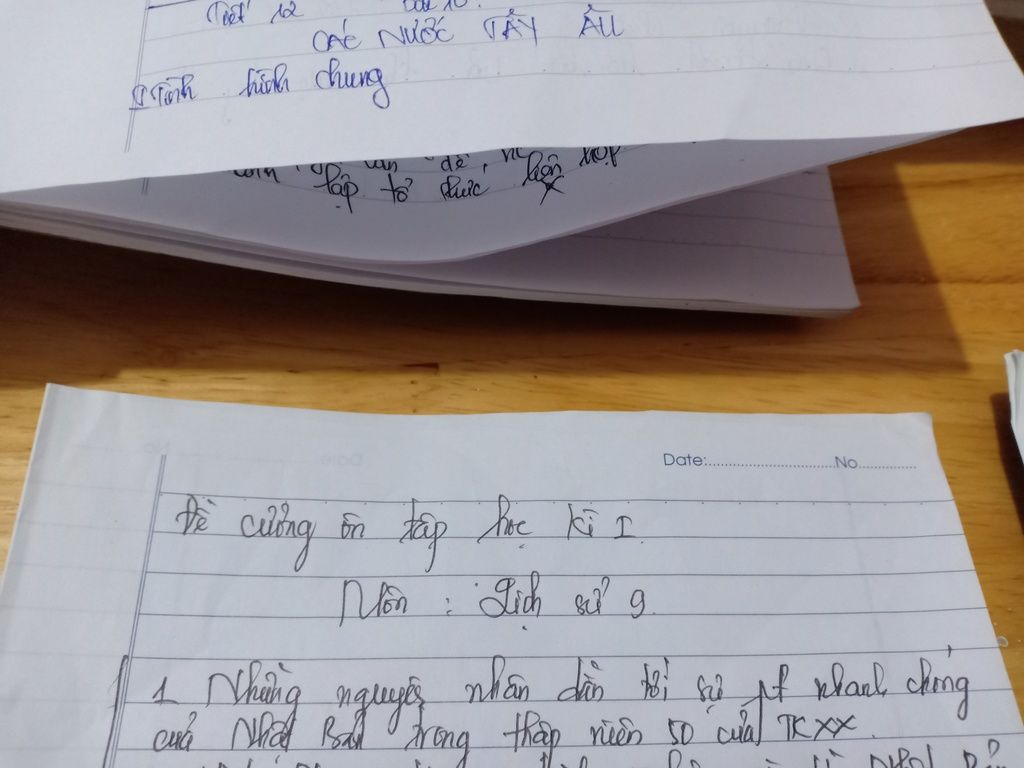 Tiết 12
CÁC NƯỚC TÂY ÂU
I Tình hình chung
lập tổ chức liên
Date: No
Đề cương ôn tập học kì I
Môn : Lịch sử 9.
1 Những nguyên nhân dẫn tới sự pt nhanh chóng
của Nhật Bản trong thập niên 50 của TK XX